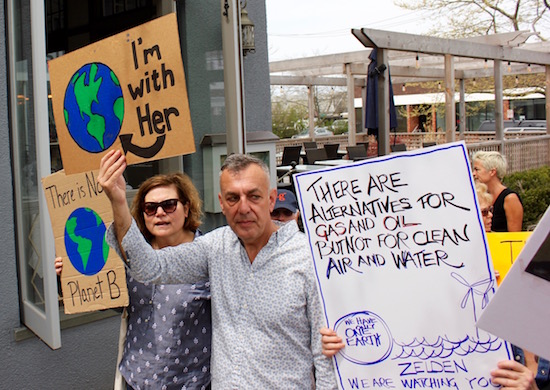 I'm
with
Her
There is No
Planet B
THERE ARE
ALTERNATIVES FOR
GAS AND OIL
BUT NOT FOR CLEAN
AIR AND WATER
WE HAVE
ONLY
ONE
EARTH
ZELDEN
WE ARE WATCHING YOU